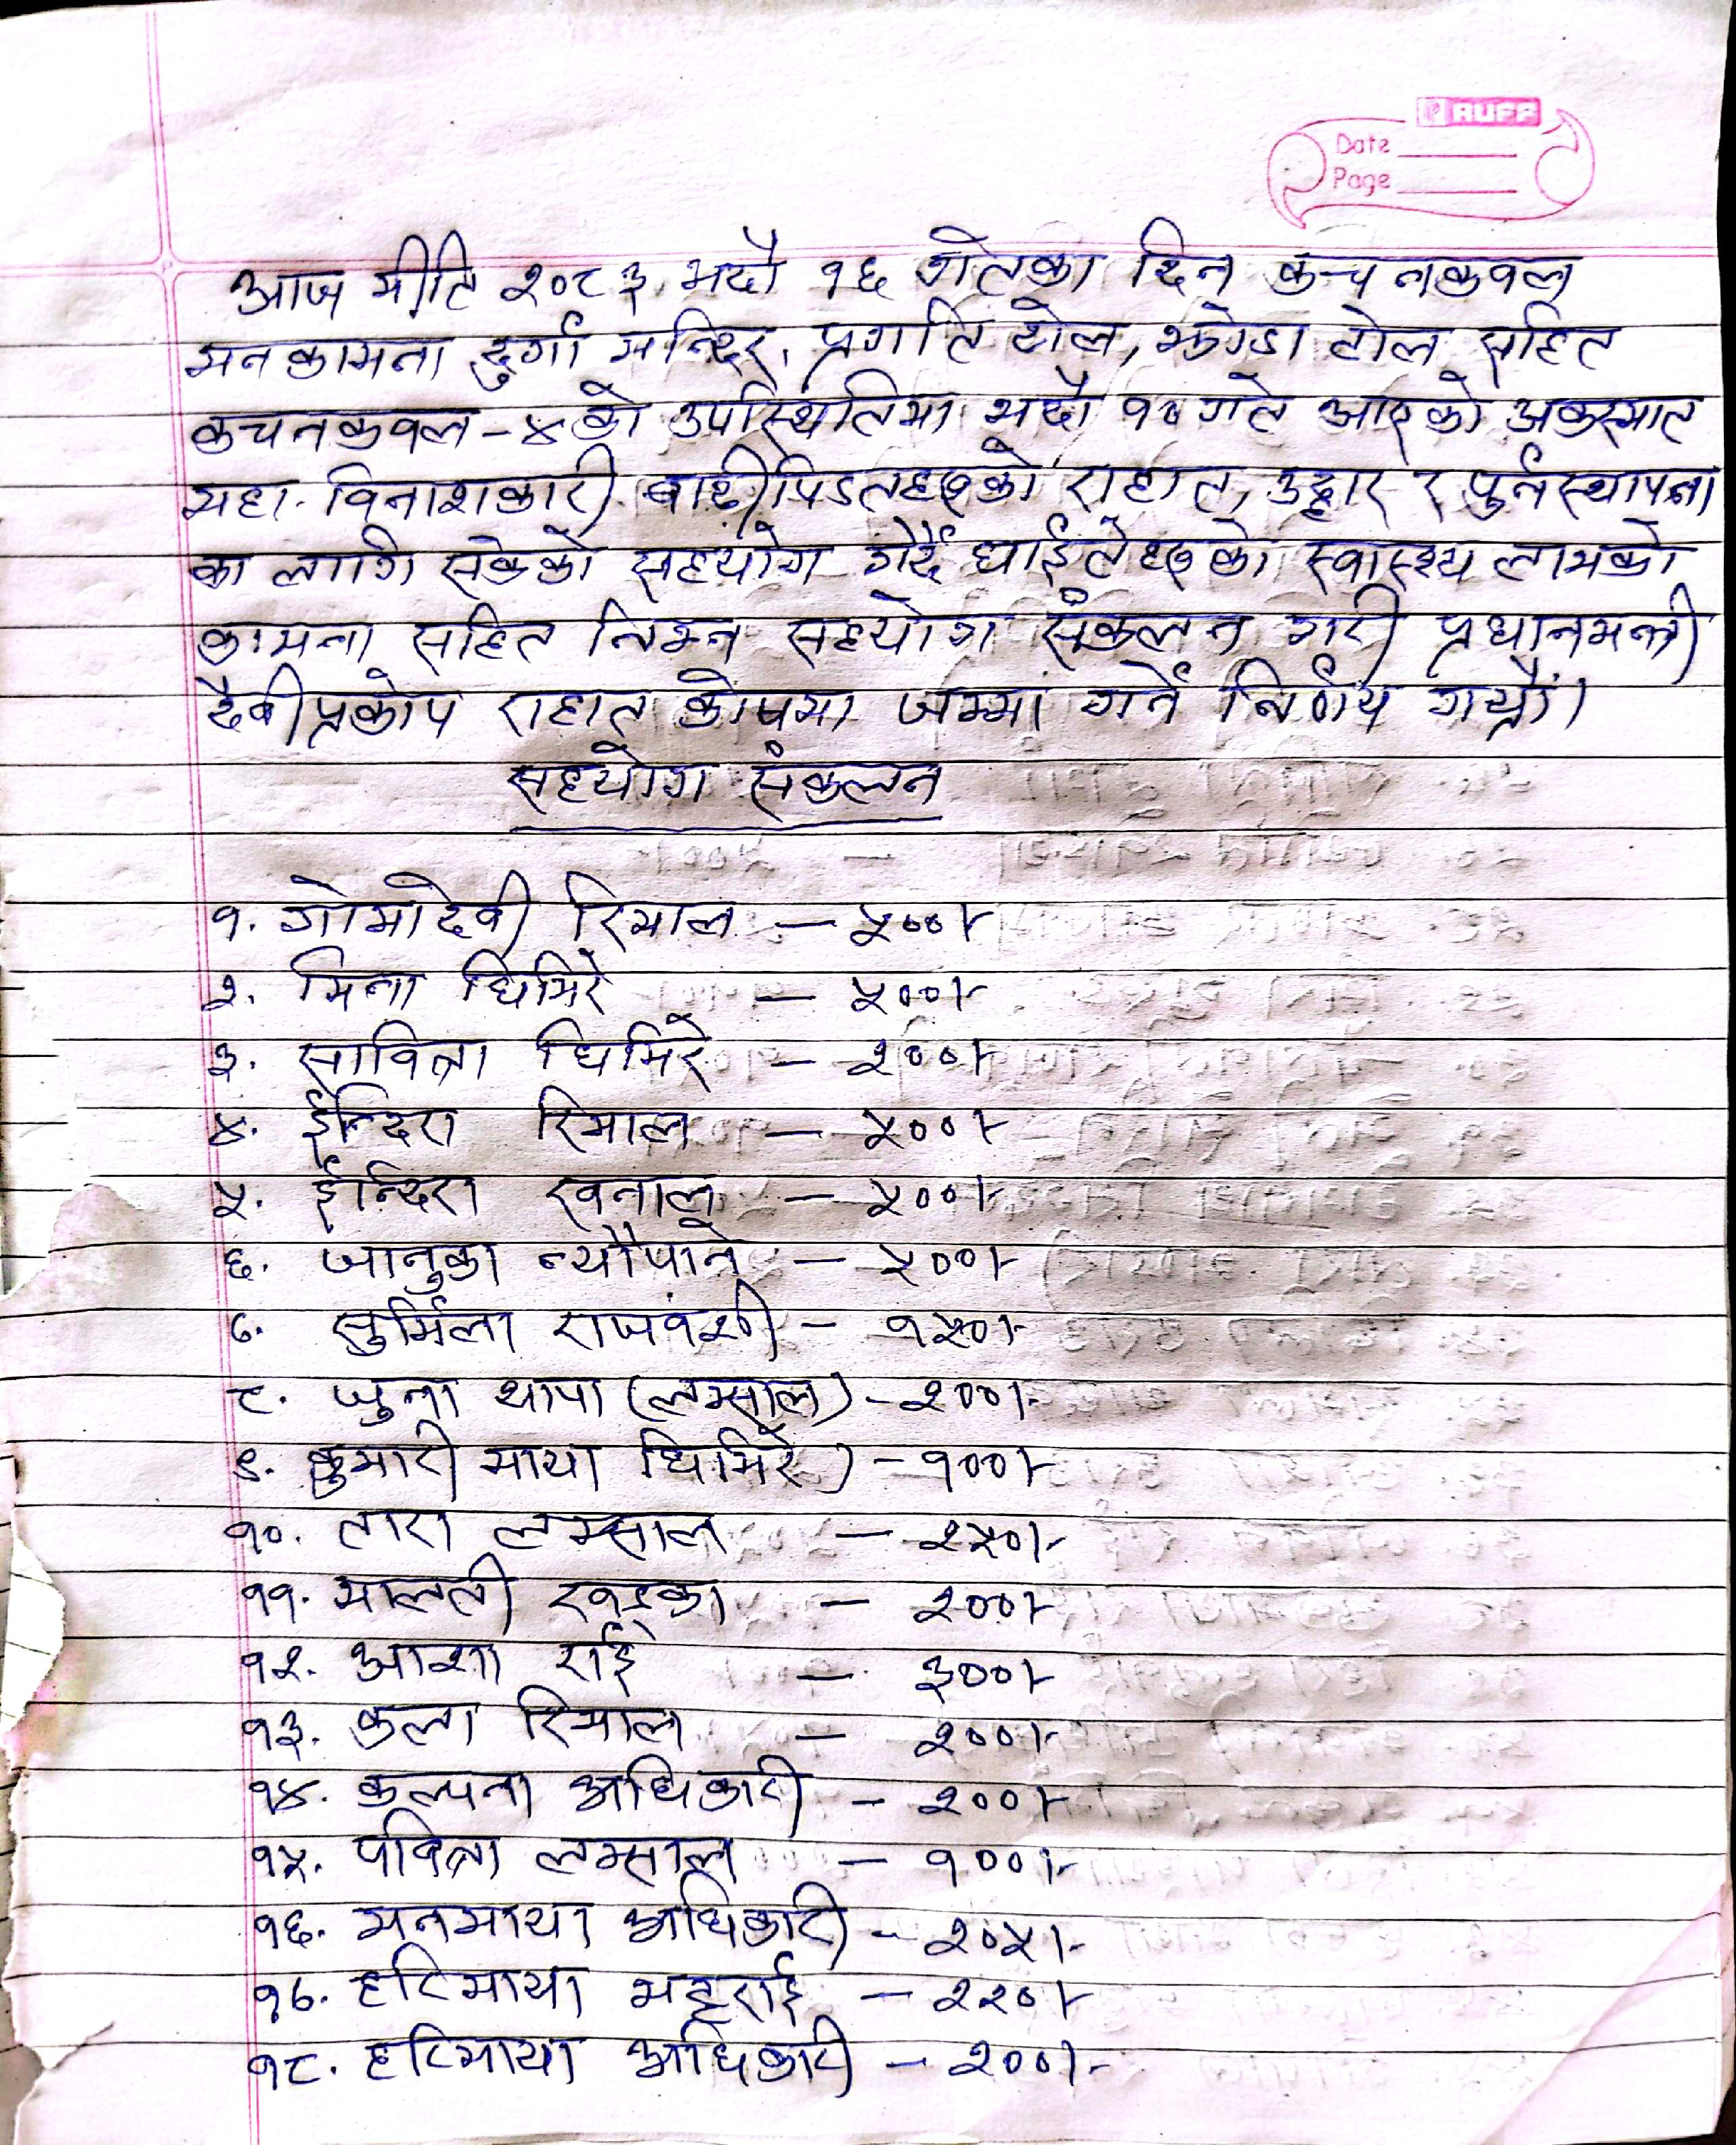 RUFF
Date
Page
आज मीति २०८३ भदौ १६ गतेका दिन कचनकवल
मनकामना दुर्गा मन्दिर, प्रगति टोल, झोडा टोल सहित
कचनकवल - ४ को उपस्थितिमा भदौ १० गते आएको अकस्मात
महा विनाशकारी बाढीपिडतहरुको राहात, उद्धार र पुर्नस्थापना
का लागि सकेको सहयोग गर्दै घाईतेहरुको स्वास्थ्य लाभको
कामना सहित निम्न सहयोग संकलन गरी प्रधानमन्त्री
दैवीप्रकोप राहात कोषमा जम्मा गर्ने निर्णय गर्यौं।
सहयोग संकलन
१. गोमादेवी रिमाल – ५००।-
२. मिना घिमिरे – ५००।-
३. सावित्रा घिमिरे – २००।-
४. ईन्दिरा रिमाल – ५००।-
५. ईन्दिरा खनाल – ५००।-
६. जानुका न्यौपाने – ५००।-
७. सुर्मिला राजवंशी – १५०।-
८. जुना थापा (लम्साल) – २००।-
९. कुमारी माया घिमिरे) – १००।-
१०. तारा लम्साल – २५०।-
११. मालती खड्का – २००।-
१२. आशा राई – ३००।-
१३. कला रिमाल – २००।-
१४. कल्पना अधिकारी – २००।-
१५. पवित्रा लम्साल – १००।-
१६. मनमाया अधिकारी – २०५।-
१७. हरिमाया भट्टराई – २२०।-
१८. हरिमाया अधिकारी – २००।-